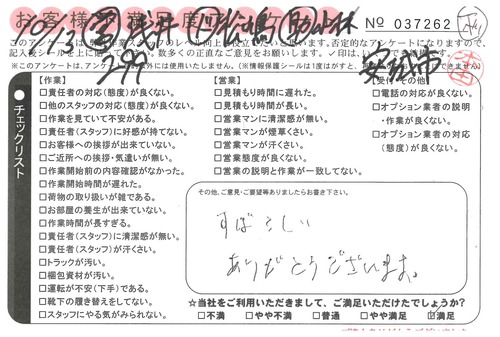 お客様
No 037262
10/13
このアンケートは
【作業】
□責任者の対応(態度)が良くない。
□他のスタッフの対応(態度)が良くない。
□作業を見ていて不安がある。
□責任者(スタッフ)に好感が持てない。
□お客様への挨拶が出来ていない。
□ご近所への挨拶・気遣いが無い。
□作業開始前の内容確認がなかった。
□作業開始時間が遅れた。
□荷物の取り扱いが雑である。
□お部屋の養生が出来ていない。
□作業時間が長すぎる。
□責任者(スタッフ)に清潔感が無い。
□責任者(スタッフ)が汗くさい。
□トラックが汚い。
□梱包資材が汚い。
□運転が不安(下手)である。
□靴下の履き替えをしてない。
□スタッフにやる気がみられない。
【営業】
□見積もり時間に遅れた。
□見積もり時間が長い。
□営業マンに清潔感が無い。
□営業マンが煙草くさい。
□営業マンが汗くさい。
□営業態度が良くない。
□営業の説明と作業が一致してない。
□電話の対応が良くない。
□オプション業者の説明
・作業が良くない。
□オプション業者の対応
(態度)が良くない。
●チェックリスト
その他、ご意見・ご要望等ありましたらお書き下さい。
すばらしい
ありがとうございます。
☆当社をご利用いただきまして、ご満足いただけたでしょうか?
□不満 □やや不満 □普通 □やや満足 ☑満足